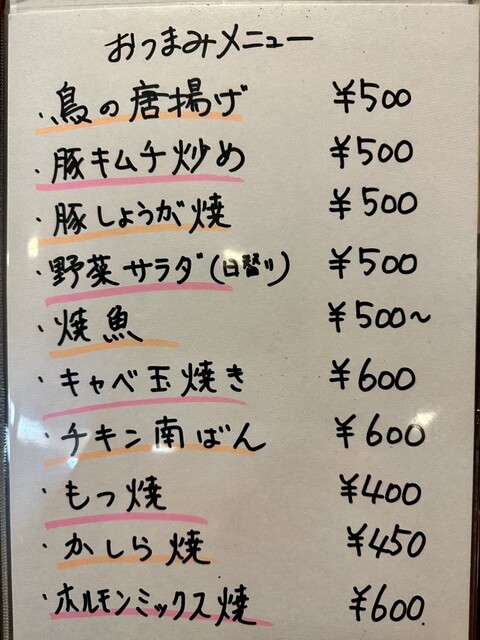 おつまみメニュー
・鳥の唐揚げ ¥500
・豚キムチ炒め ¥500
・豚しょうが焼 ¥500
・野菜サラダ(日替り) ¥500
・焼魚 ¥500～
・キャベ玉焼き ¥600
・チキン南ばん ¥600
・もつ焼 ¥400
・かしら焼 ¥450
・ホルモンミックス焼 ¥600